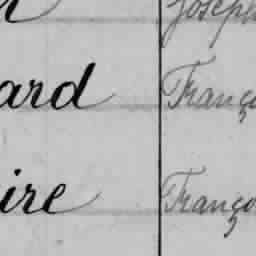 Joseph
ard Franço
ire Franço